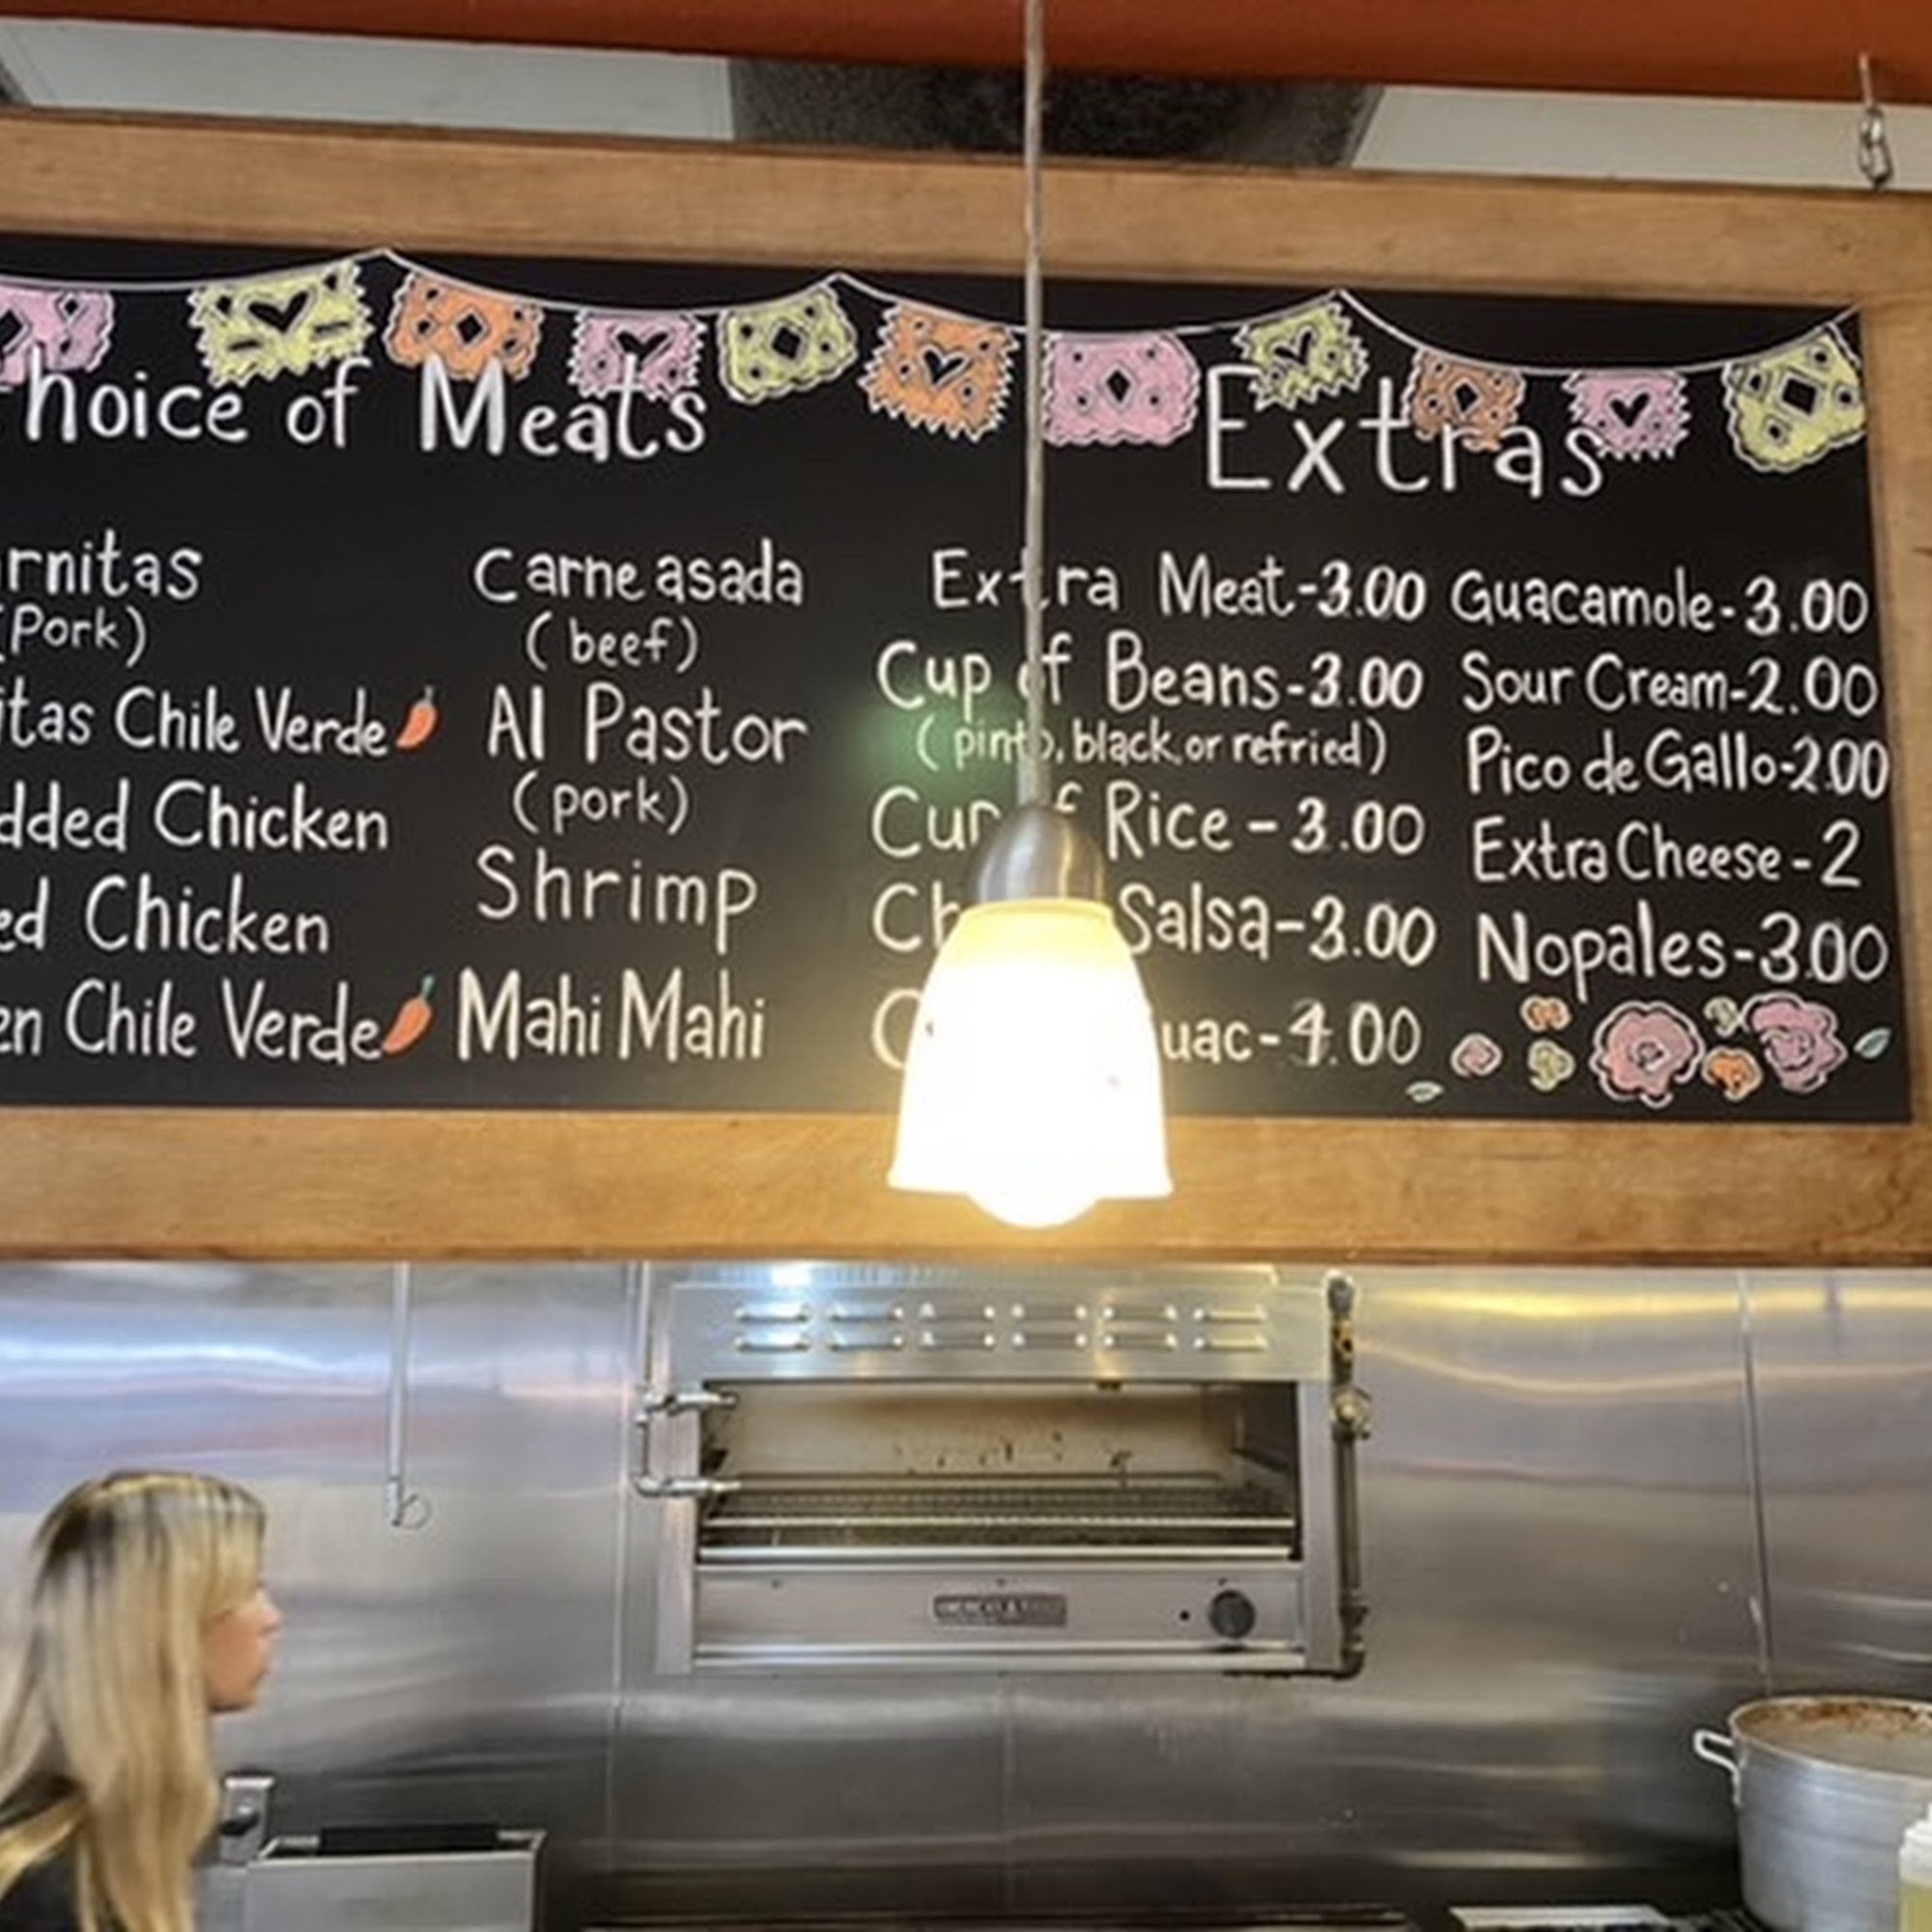 Choice of Meats
Carnitas
(Pork)
itas Chile Verde
dded Chicken
ed Chicken
en Chile Verde
Carne asada
(beef)
Al Pastor
(pork)
Shrimp
Mahi Mahi
Extras
Extra Meat-3.00
Cup of Beans-3.00
(pinto, black, or refried)
Cup of Rice - 3.00
Salsa-3.00
uac-4.00
Guacamole-3.00
Sour Cream-2.00
Pico de Gallo-2.00
Extra Cheese-2
Nopales-3.00